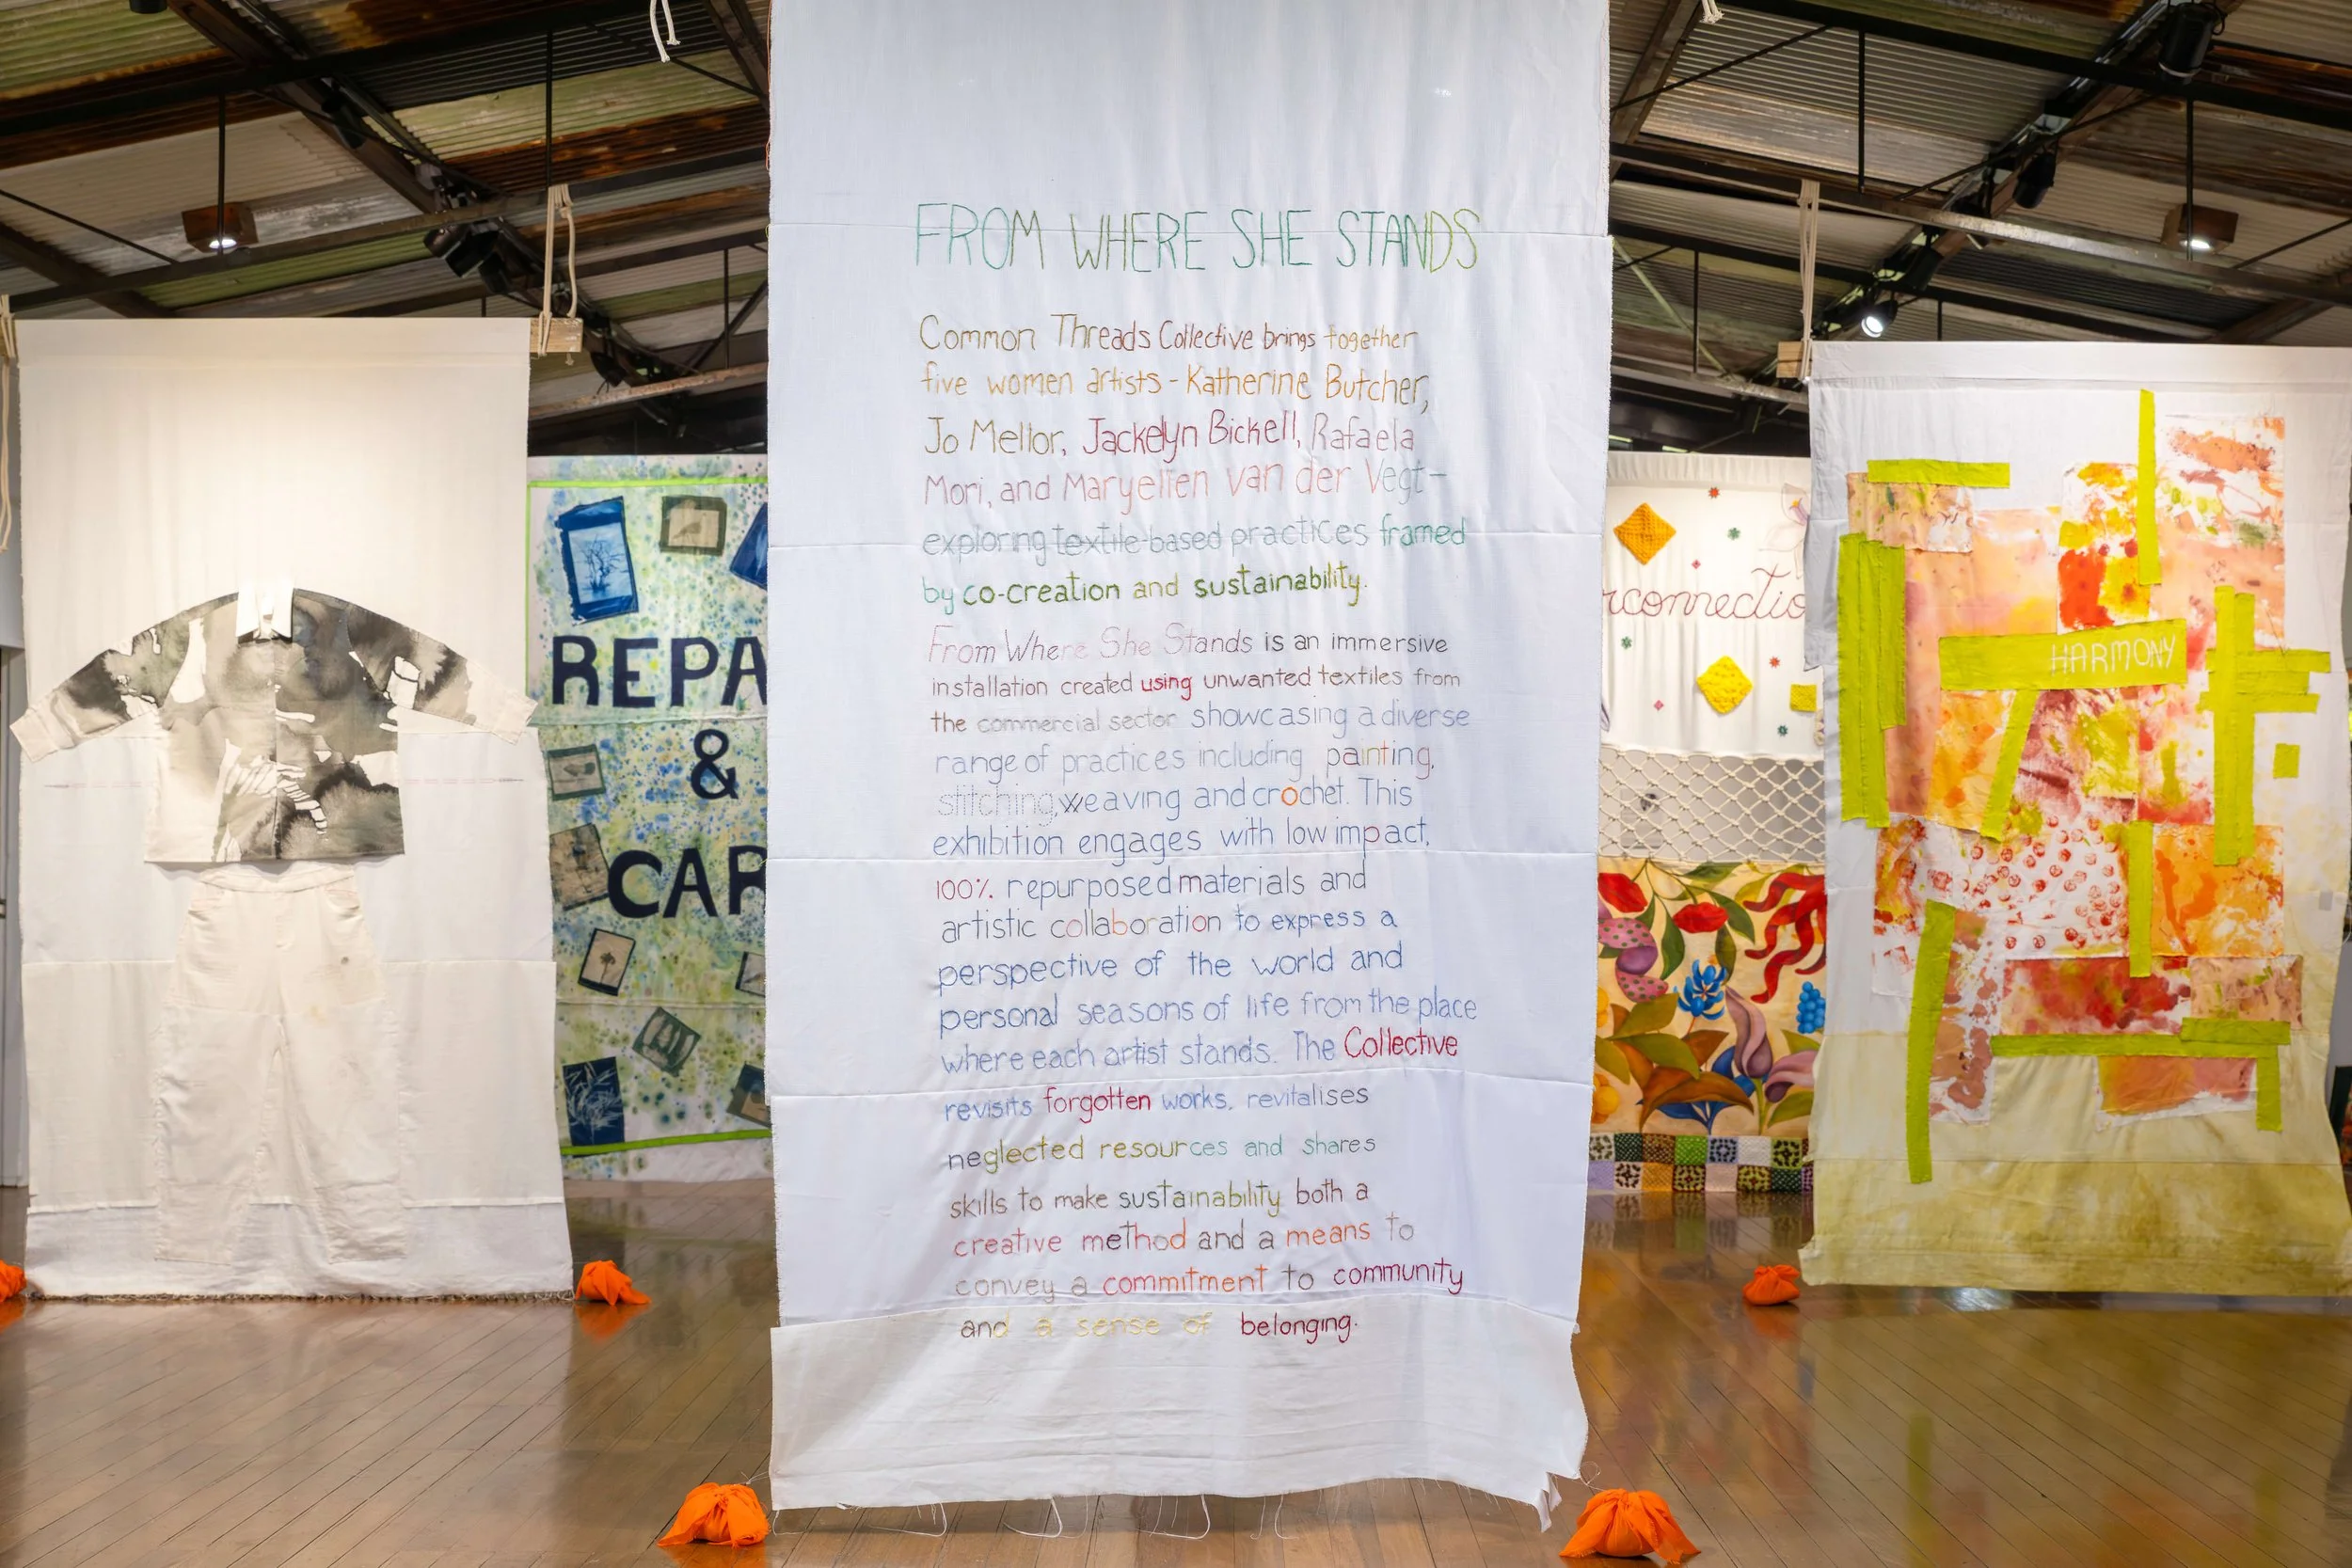 FROM WHERE SHE STANDS
Common Threads Collective brings together
five women artists - Katherine Butcher,
Jo Mellor, Jackelyn Bickell, Rafaela
Mori, and Maryellen van der Vegt -
exploring textile-based practices framed
by co-creation and sustainability.
From Where She Stands is an immersive
installation created using unwanted textiles from
the commercial sector showcasing a diverse
range of practices including painting,
stitching, weaving and crochet. This
exhibition engages with low impact,
100% repurposed materials and
artistic collaboration to express a
perspective of the world and
personal seasons of life from the place
where each artist stands. The Collective
revisits forgotten works, revitalises
neglected resources and shares
skills to make sustainability both a
creative method and a means to
convey a commitment to community
and a sense of belonging.
REPA
&
CAR
rconnectio
HARMONY